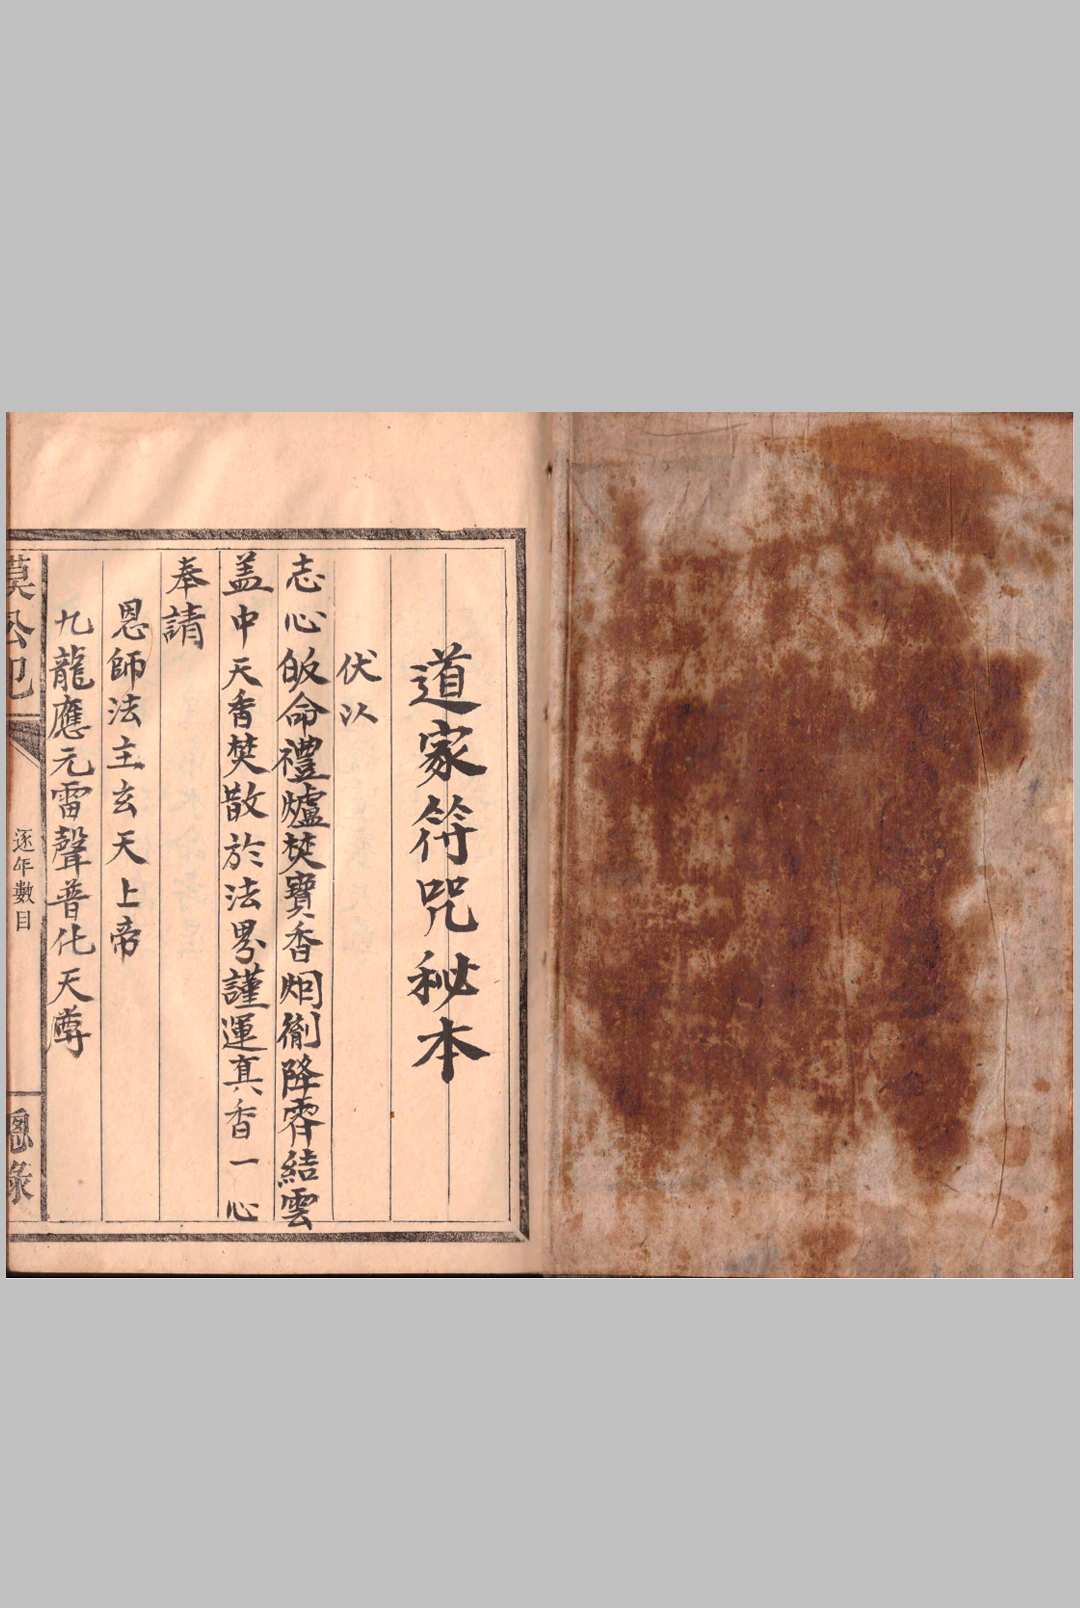 道家符咒秘本
伏以
志心皈命禮爐焚寶香烟衝降霄結雲
盖中天香焚散於法界謹運真香一心
奉請
恩師法主玄天上帝
九龍應元雷聲普化天尊
逐年數目
總錄